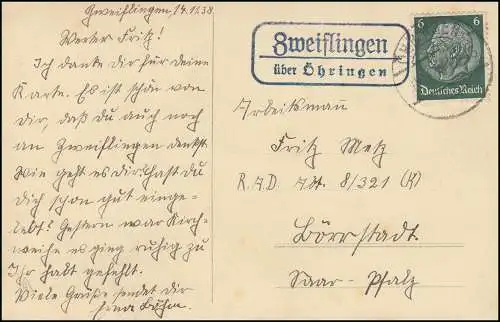 Zweiflingen, 14.12.38.
Werter Fritz!
Ich danke dir für deine
Karte. Es ist schön von
dir, daß du auch noch
an Zweiflingen denkst.
Wie geht es dir? Hast du
dich schon gut einge-
lebt? Gestern war Kirch-
weihe es ging ruhig zu
Ihr habt gefehlt.
Viele Grüße sendet dir
Böhm.
Zweiflingen
über Öhringen
6 6
Deutsches Reich
Arbeitsmann
Fritz Metz
R.A.D. Abt. 8/321 (K)
Börrstadt
Saar-Pfalz